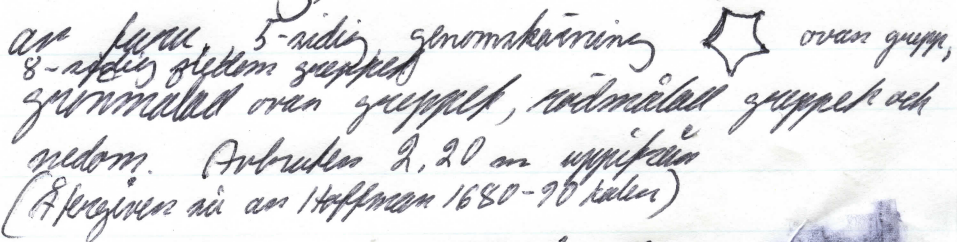 av furu, 5-sidig genomskärning ovan grepp,
8-sidig nedom greppet
grönmålad ovan greppet, rödmålad greppet och
nedom. Avbruten 2,20 m uppifrån
(Återgiven av Hoffman 1680-90 talen)